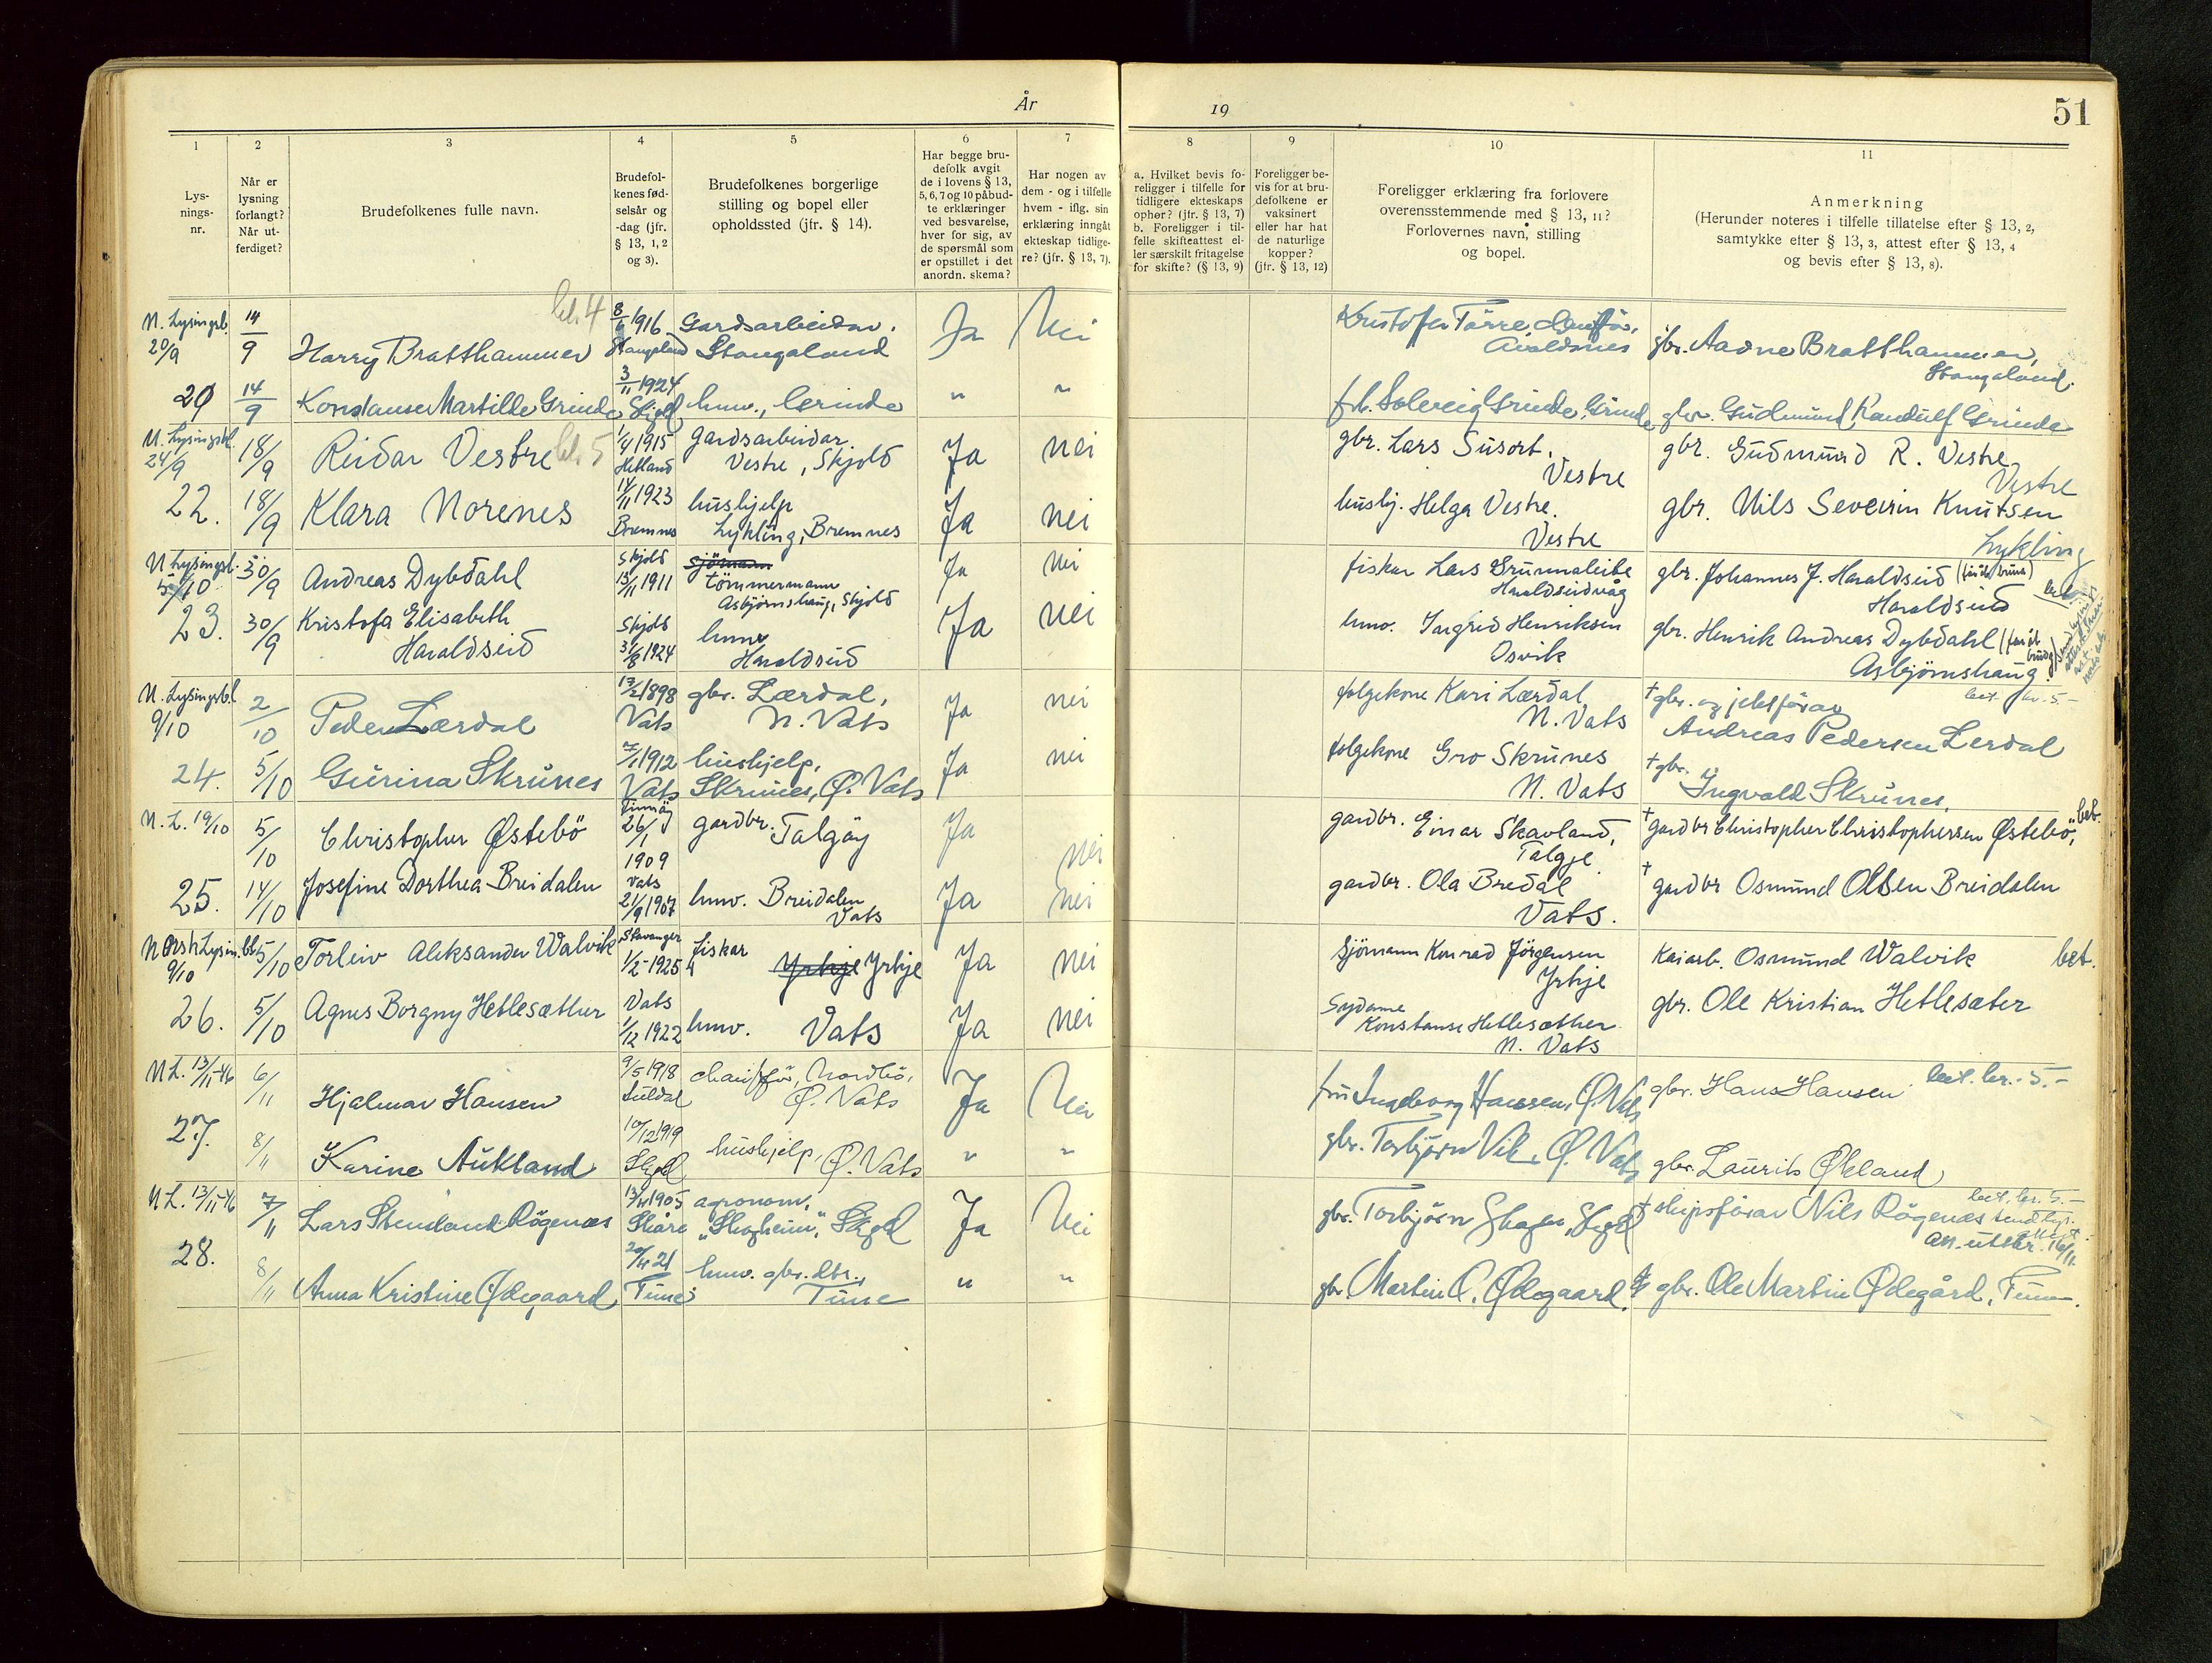 År
19
51
1
Lys-
nings-
nr.
2
Når er
lysning
forlangt?
Når ut-
ferdiget?
3
Brudefolkenes fulle navn.
4
Brudefol-
kenes fød-
selsår og
-dag (jfr.
§ 13, 1, 2
og 3).
5
Brudefolkenes borgerlige
stilling og bopel eller
opholdssted (jfr. § 14).
6
Har begge bru-
defolk avgit
de i lovens § 13,
5, 6, 7 og 10 påbud-
te erklæringer
ved besvarelse,
hver for sig, av
de spørsmål som
er opstillet i det
anordn. skema?
7
Har nogen av
dem - og i tilfelle
hvem - iflg. sin
erklæring inngåt
ekteskap tidlige-
re? (jfr. § 13, 7).
8
a. Hvilket bevis fo-
religger i tilfelle for
tidligere ekteskaps
ophør? (jfr. § 13, 7)
b. Foreligger i til-
felle skifteattest el-
ler særskilt fritagelse
for skifte? (§ 13, 9)
9
Foreligger be-
vis for at bru-
defolkene er
vaksinert
eller har hat
de naturlige
kopper?
(jfr. § 13, 12)
10
Foreligger erklæring fra forlovere
overensstemmende med § 13, 11?
Forlovernes navn, stilling
og bopel.
11
Anmerkning
(Herunder noteres i tilfelle tillatelse efter § 13, 2,
samtykke efter § 13, 3, attest efter § 13, 4
og bevis efter § 13, 8).
N. Lysingsbl. 20/9
14/9
Harry Bratthammer
bl. 4
8/6 1916
Stangeland
Gardsarbeidar.
Stangaland
Ja
Nei
Kristofer Tärre,
Avaldsnes
gbr. Aadne Bratthammer,
Stangaland.
14/9
Konstanse Martille Grinde
3/11 1924
Skjold
hmv., Grinde
"
"
frk. Solveig Grinde, Grinde
gbr. Gudmund Randulf Grinde
N. Lysingsbl. 24/9
22.
18/9
Reidar Vestre
bl. 5
1/4 1915
Hetland
gardsarbeidar
Vestre, Skjold
Ja
nei
gbr. Lars Susort,
Vestre
gbr. Gudmund R. Vestre,
Vestre
18/9
Klara Norenes
14/11 1923
Bremnes
hushjelp
Lykling, Bremnes
Ja
nei
hushj. Helga Vestre.
Vestre
gbr. Nils Severin Knutsen
Lykling
N. Lysingsbl. 5/10
23.
30/9
Andreas Dybdahl
Skjold
13/11 1911
sjömann
tömmermann
Asbjörnshaug, Skjold
Ja
nei
fiskar Lars Grunnaleite
Haraldseidvåg
gbr. Johannes J. Haraldseid
Haraldseid
30/9
Kristofa Elisabeth
Haraldseid
Skjold
31/8 1924
hmv
Haraldseid
Ja
nei
hmv. Ingrid Henriksen
Osvik
gbr. Henrik Andreas Dybdahl
Asbjörnshaug
N. Lysingsbl. 9/10
24.
2/10
Peder Lærdal
13/2 1898
Vats
gbr. Lærdal,
N. Vats
Ja
nei
folgekone Kari Lærdal
N. Vats
bet. kr. 5.-
† gbr. og jektförar
Andreas Pedersen Lerdal
5/10
Gurina Skrunes
7/1 1912
Vats
hushjelp,
Skrunes, Ø. Vats
Ja
nei
folgekone Gro Skrunes
N. Vats
† gbr.
Ingvald Skrunes,
N. L. 19/10
25.
5/10
Christopher Østebö
Finnöy
26/1
1909
gardbr. Talgöy
Ja
nei
gardbr. Einar Skavland,
Talgje
† gardbr Christopher Christophersen Østebö,
bet.
14/10
Josefine Dorthea Breidalen
Vats
21/9 1907
hmv. Breidalen
Vats
Ja
nei
gardbr. Ola Bredal
Vats.
† gardbr Osmund Olsen Breidalen
Norsk Lysin. bl. 9/10
26.
5/10
Torleiv Aleksander Walvik
Stavanger
1/2-1925
fiskar
Yrkje Yrkje
Ja
nei
Sjömann Konrad Jörgensen
Yrkje
Kaiarb. Osmund Walvik
bet.
5/10
Agnes Borgny Hetlesæther
Vats
1/12 1922
hmv. Vats
Ja
nei
Sydame
Konstanse Hetlesæther
N. Vats
gbr. Ole Kristian Hetlesæter
N L. 13/11-46
27.
6/11
Hjalmar Hansen
9/5 1918
Suldal
chauffør, Nordbö,
Ø. Vats
Ja
Nei
fru Ingeborg Hanssen, Ø. Vats
gbr. Hans Hansen
bet. kr. 5.-
8/11
Karine Aukland
10/12 1919
Skjold
hushjelp, Ø. Vats
"
"
gbr. Torbjørn Vik, Ø. Vats
gbr. Laurits Økland
N L. 13/11-46
28.
7/11
Lars Stensland Rögenæs
13/4 1905
Skåre
agronom,
"Skogheim", Skjold
Ja
Nei
gbr. Torbjörn Skagen, Skjold
† skipsförar Nils Rögenæs
bet. kr. 5.-
8/11
Anna Kristine Ødegaard
20/4 21
Tune
hmv. gbr. dtr.,
Tune
"
"
gbr Martin O. Ødegaard.
gbr. Ole Martin Ødegård, Tune.